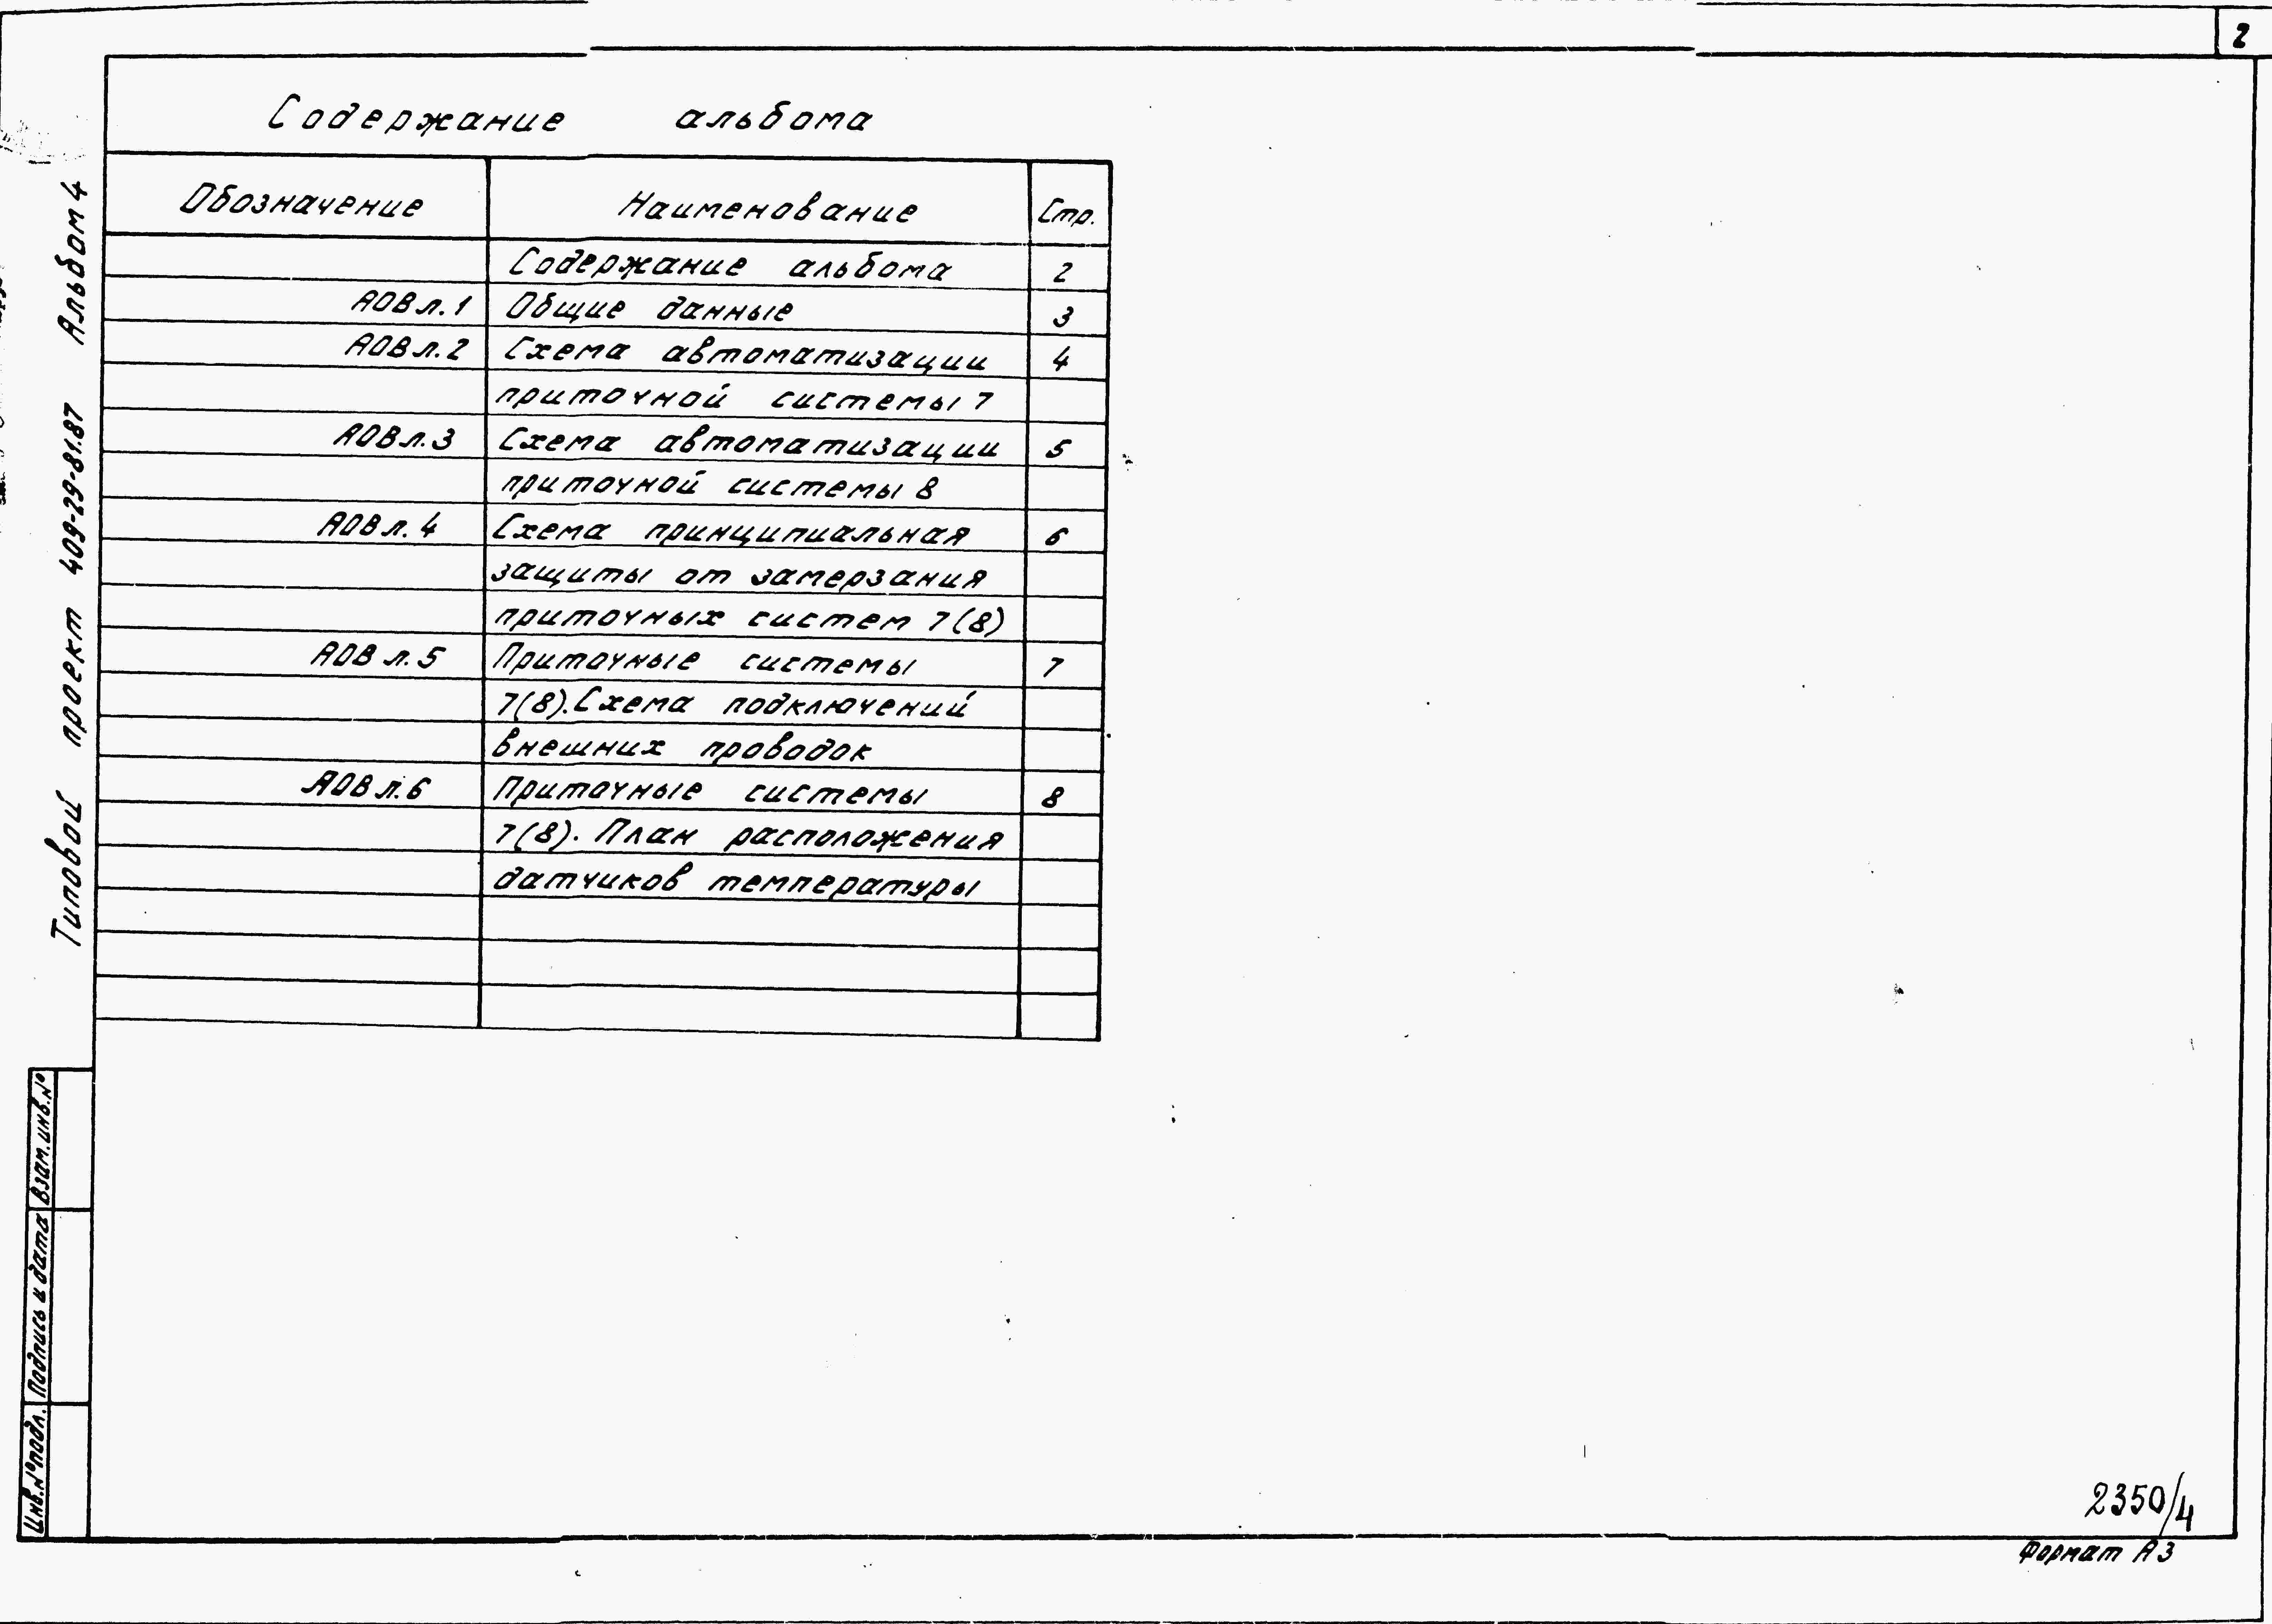 2
Содержание альбома
Обозначение Наименование Стр.
Содержание альбома 2
АОВ л.1 Общие данные 3
АОВ л.2 Схема автоматизации 4
приточной системы 7
АОВ л.3 Схема автоматизации 5
приточной системы 8
АОВ л.4 Схема принципиальная 6
защиты от замерзания
приточных систем 7(8)
АОВ л.5 Приточные системы 7
7(8). Схема подключений
внешних проводок
АОВ л.6 Приточные системы 8
7(8). План расположения
датчиков температуры
Типовой проект 409-29-81.87 Альбом 4
Инв.№подл. Подпись и дата Взам.инв.№
2350/4
Формат А3